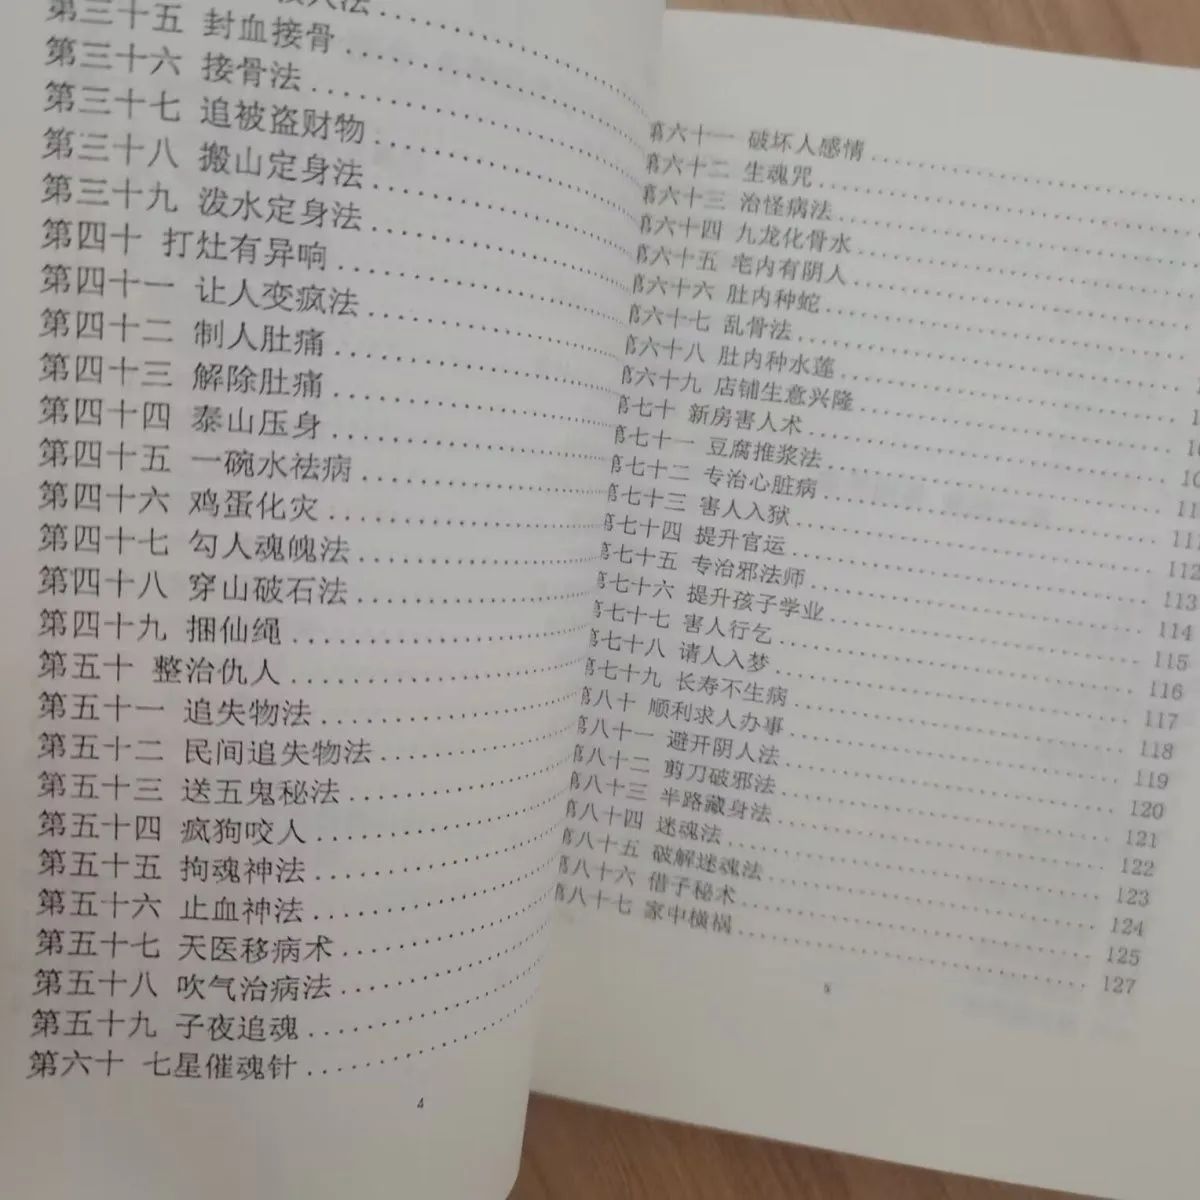 法
第三十五 封血接骨
第三十六 接骨法
第三十七 追被盗财物
第三十八 搬山定身法
第三十九 泼水定身法
第四十 打灶有异响
第四十一 让人变疯法
第四十二 制人肚痛
第四十三 解除肚痛
第四十四 泰山压身
第四十五 一碗水祛病
第四十六 鸡蛋化灾
第四十七 勾人魂魄法
第四十八 穿山破石法
第四十九 捆仙绳
第五十 整治仇人
第五十一 追失物法
第五十二 民间追失物法
第五十三 送五鬼秘法
第五十四 疯狗咬人
第五十五 拘魂神法
第五十六 止血神法
第五十七 天医移病术
第五十八 吹气治病法
第五十九 子夜追魂
第六十 七星催魂针
4
第六十一 破坏人感情
第六十二 生魂咒
第六十三 治怪病法
第六十四 九龙化骨水
第六十五 宅内有阴人
第六十六 肚内种蛇
第六十七 乱骨法
第六十八 肚内种水莲
第六十九 店铺生意兴隆
第七十 新房害人术
第七十一 豆腐推浆法
第七十二 专治心脏病
第七十三 害人入狱
第七十四 提升官运 112
第七十五 专治邪法师 113
第七十六 提升孩子学业 114
第七十七 害人行乞 115
第七十八 请人入梦 116
第七十九 长寿不生病 117
第八十 顺利求人办事 118
第八十一 避开阴人法 119
第八十二 剪刀破邪法 120
第八十三 半路藏身法 121
第八十四 迷魂法 122
第八十五 破解迷魂法 123
第八十六 借子秘术 124
第八十七 家中横祸 125
127
5